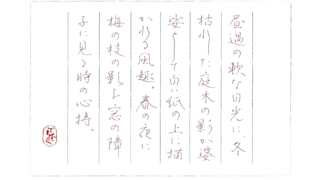 昼過の軟な日光に、冬
枯れした庭木の影が婆
娑として白い紙の上に描
かれる風趣。春の夜に
梅の枝の影を窓の障
子に見る時の心持。